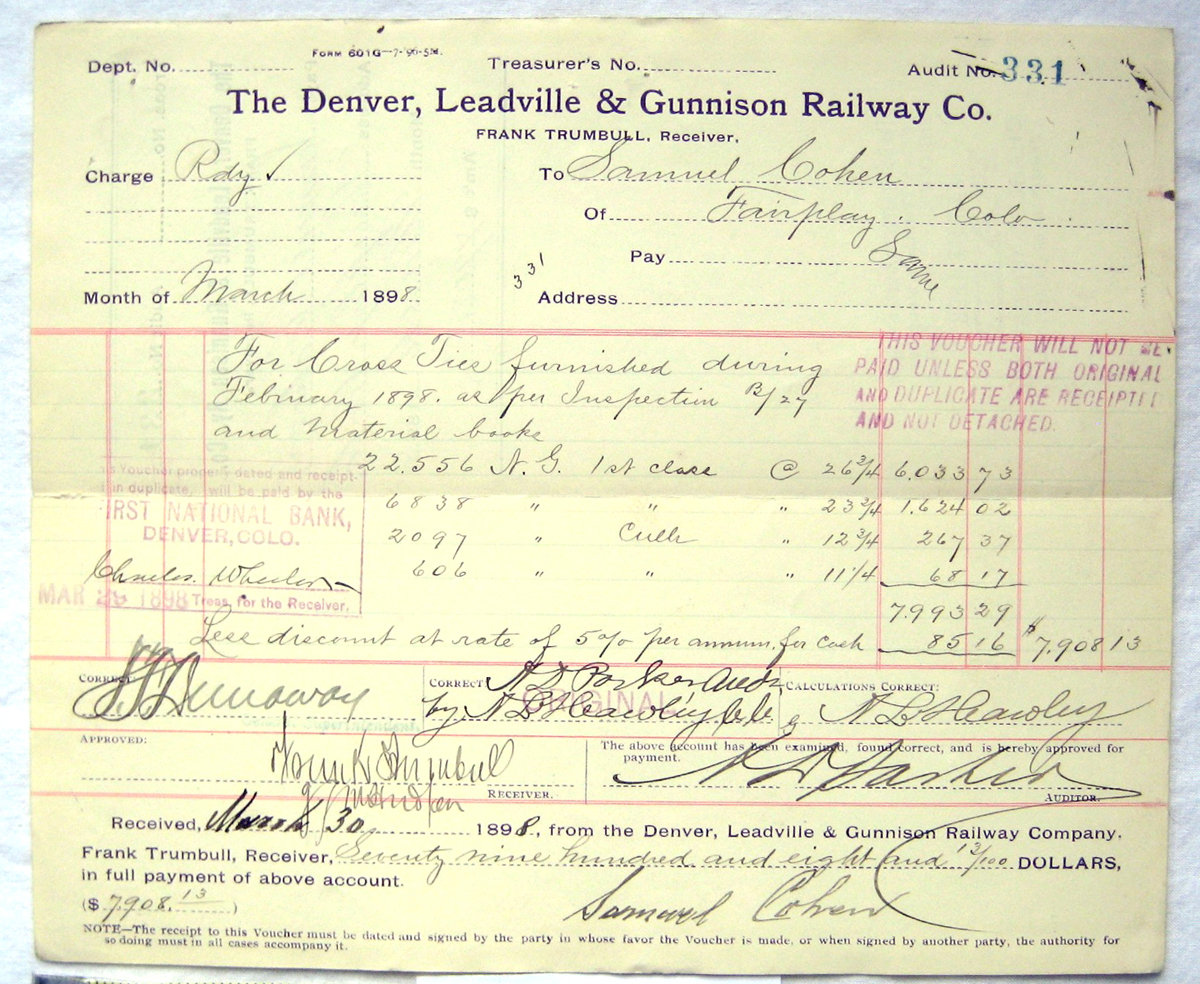 Form 601G—7-96-5M.
Dept. No.
Treasurer's No.
Audit No. 331
The Denver, Leadville & Gunnison Railway Co.
FRANK TRUMBULL, Receiver,
Charge Rdy ✓
To Samuel Cohen
Of Fairplay. Colo.
Pay Same
331
Month of March 1898.
Address
THIS VOUCHER WILL NOT BE
PAID UNLESS BOTH ORIGINAL
AND DUPLICATE ARE RECEIPTED
AND NOT DETACHED.
For Cross Ties furnished during
February 1898. as per Inspection B/27
and Material books
22.556 N.G. 1st class @ 26 3/4 6.033 73
6838 " " " 23 3/4 1.624 02
2097 " Culls " 12 3/4 267 37
606 " " " 11 1/4 68 17
7.993 29
Less discount at rate of 5% per annum. for cash 85 16 $7.908 13
is Voucher properly dated and receipt-
in duplicate, will be paid by the
IRST NATIONAL BANK,
DENVER, COLO.
Charles Wheeler
MAR 29 1898 Treas. for the Receiver.
CORRECT: Dunaway
CORRECT: A D Parker Audr
ORIGINAL
by N B Hawley
CALCULATIONS CORRECT:
N B Hawley
APPROVED:
Frank Trumbull
RECEIVER.
The above account has been examined, found correct, and is hereby approved for
payment.
A D Parker
AUDITOR.
Received, March 30 1898., from the Denver, Leadville & Gunnison Railway Company.
Frank Trumbull, Receiver, Seventy nine hundred and eight and 13/100 DOLLARS,
in full payment of above account.
($ 7908.13 )
Samuel Cohen
NOTE—The receipt to this Voucher must be dated and signed by the party in whose favor the Voucher is made, or when signed by another party, the authority for
so doing must in all cases accompany it.